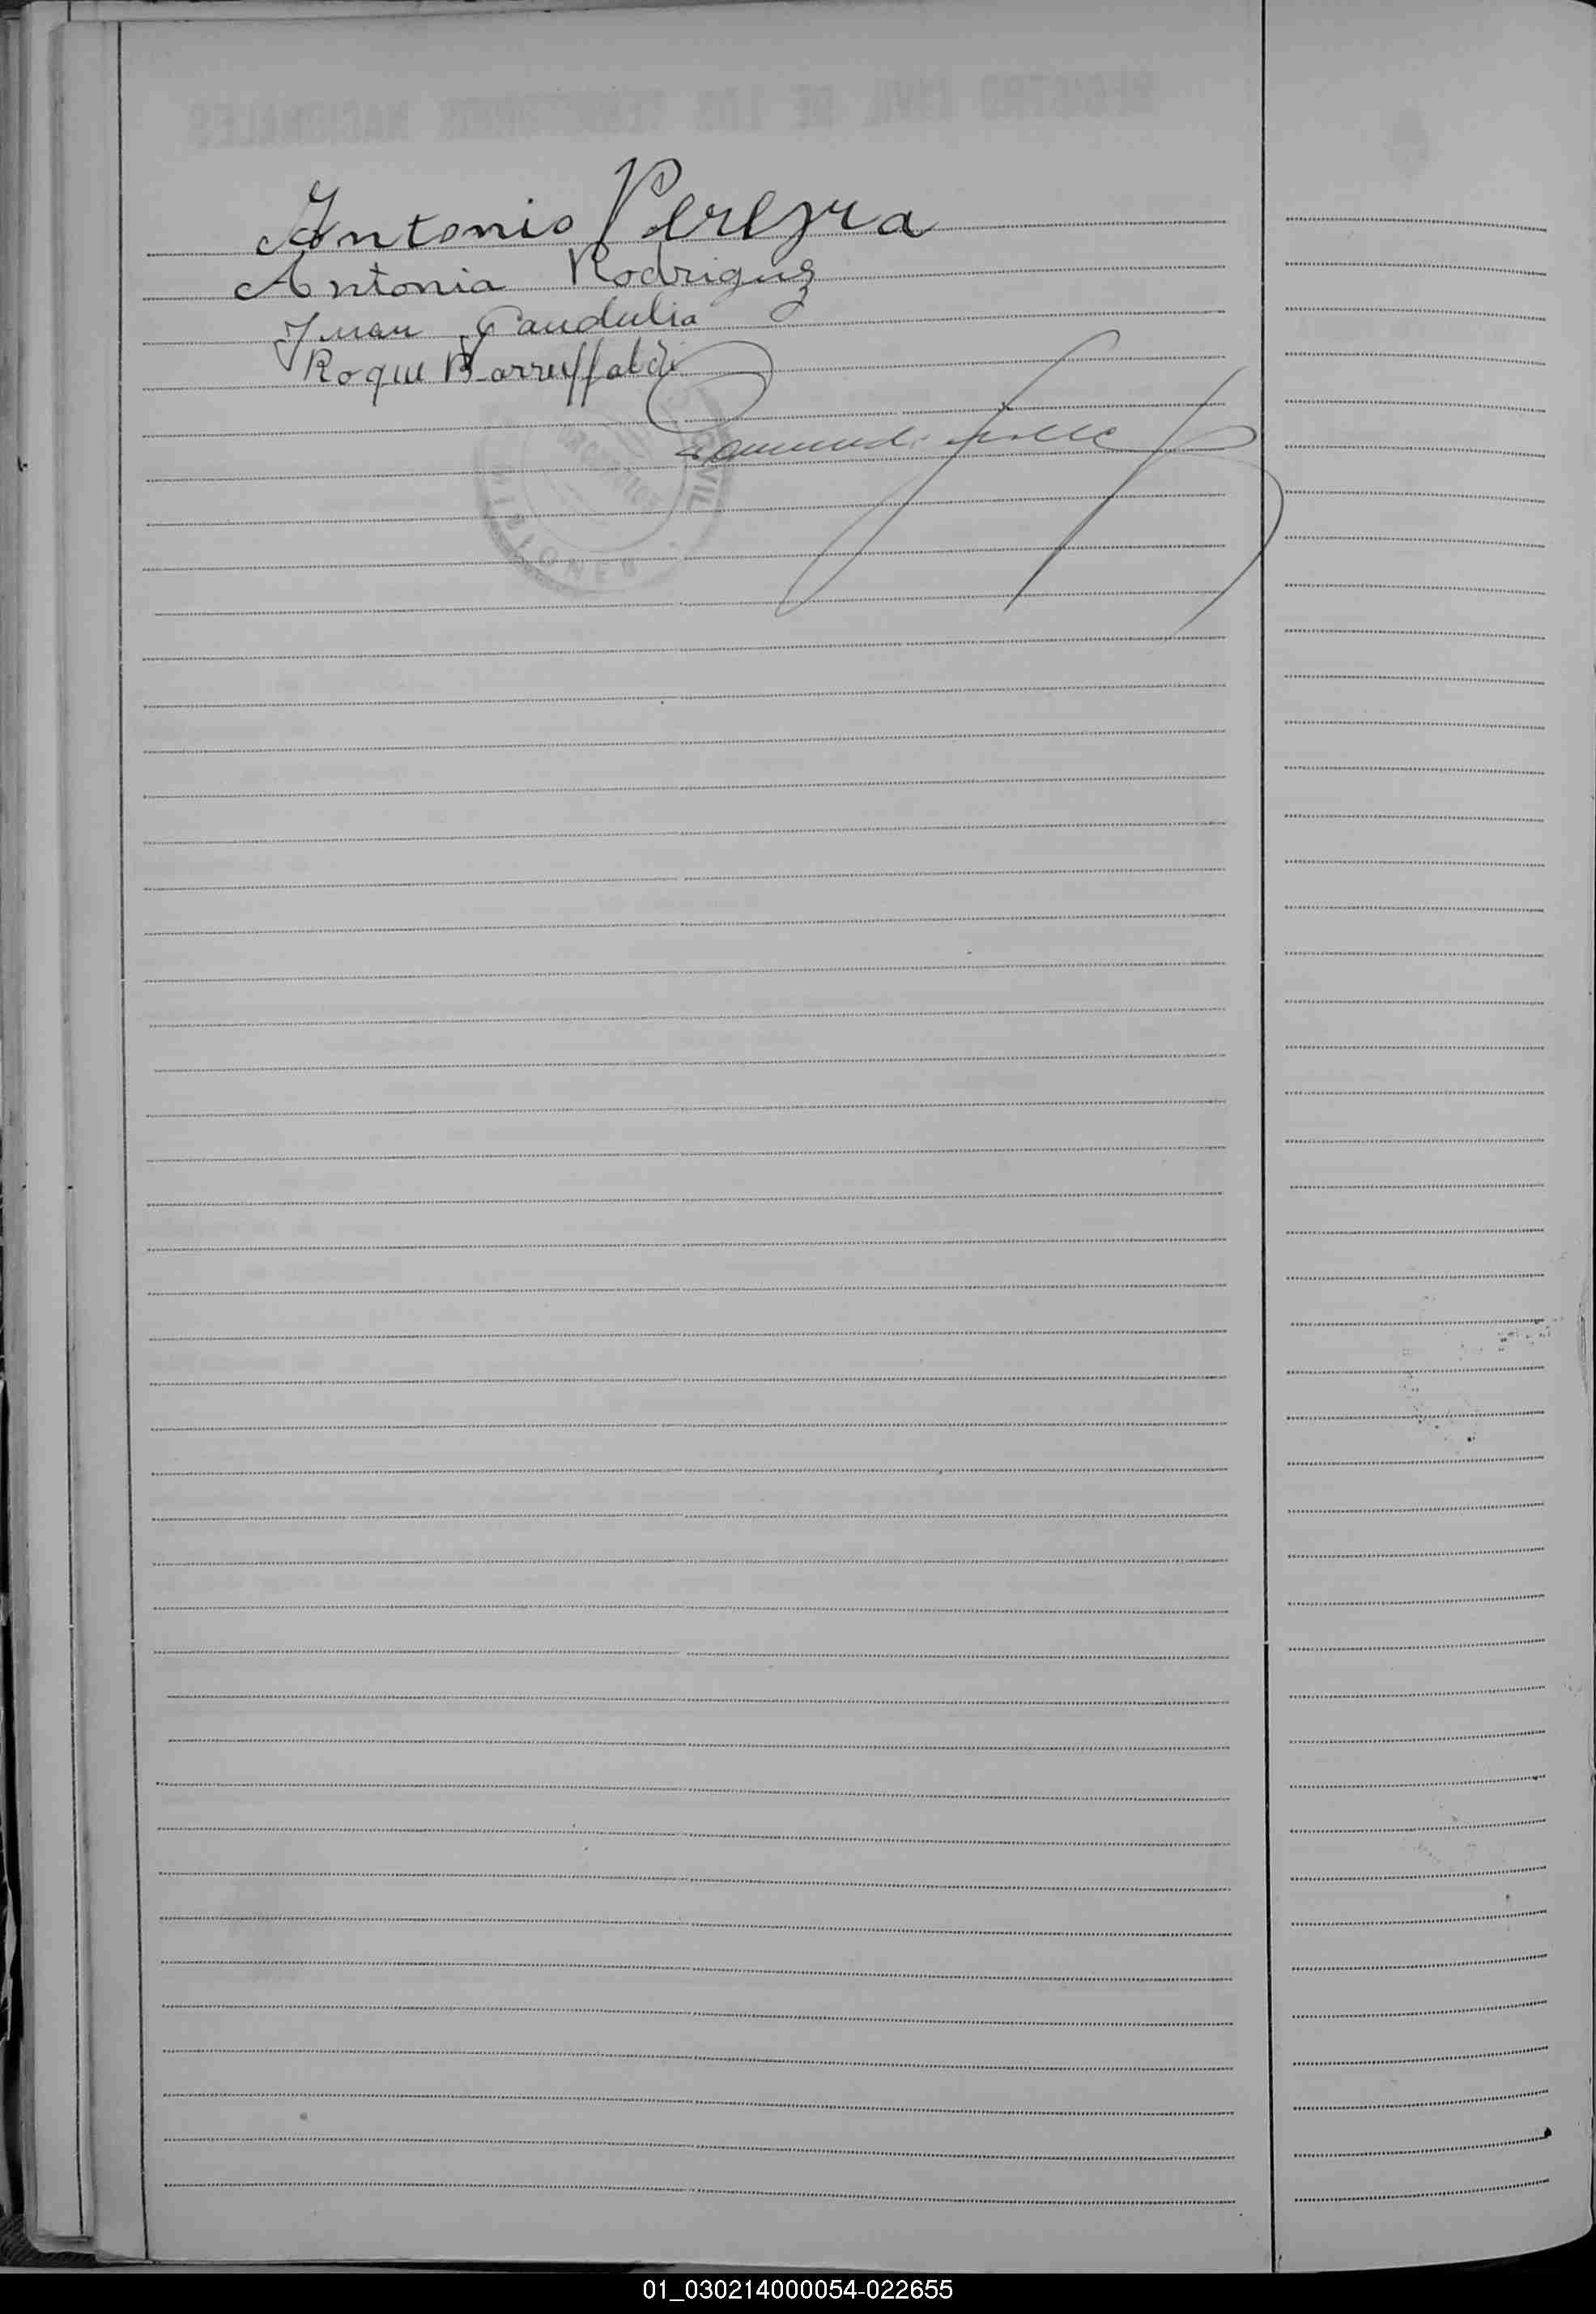 Antonio Pereyra
Antonia Rodriguez
Juan Gandulia
Roque Barruffaldi
CIVIL
MISIONES
01_030214000054-022655